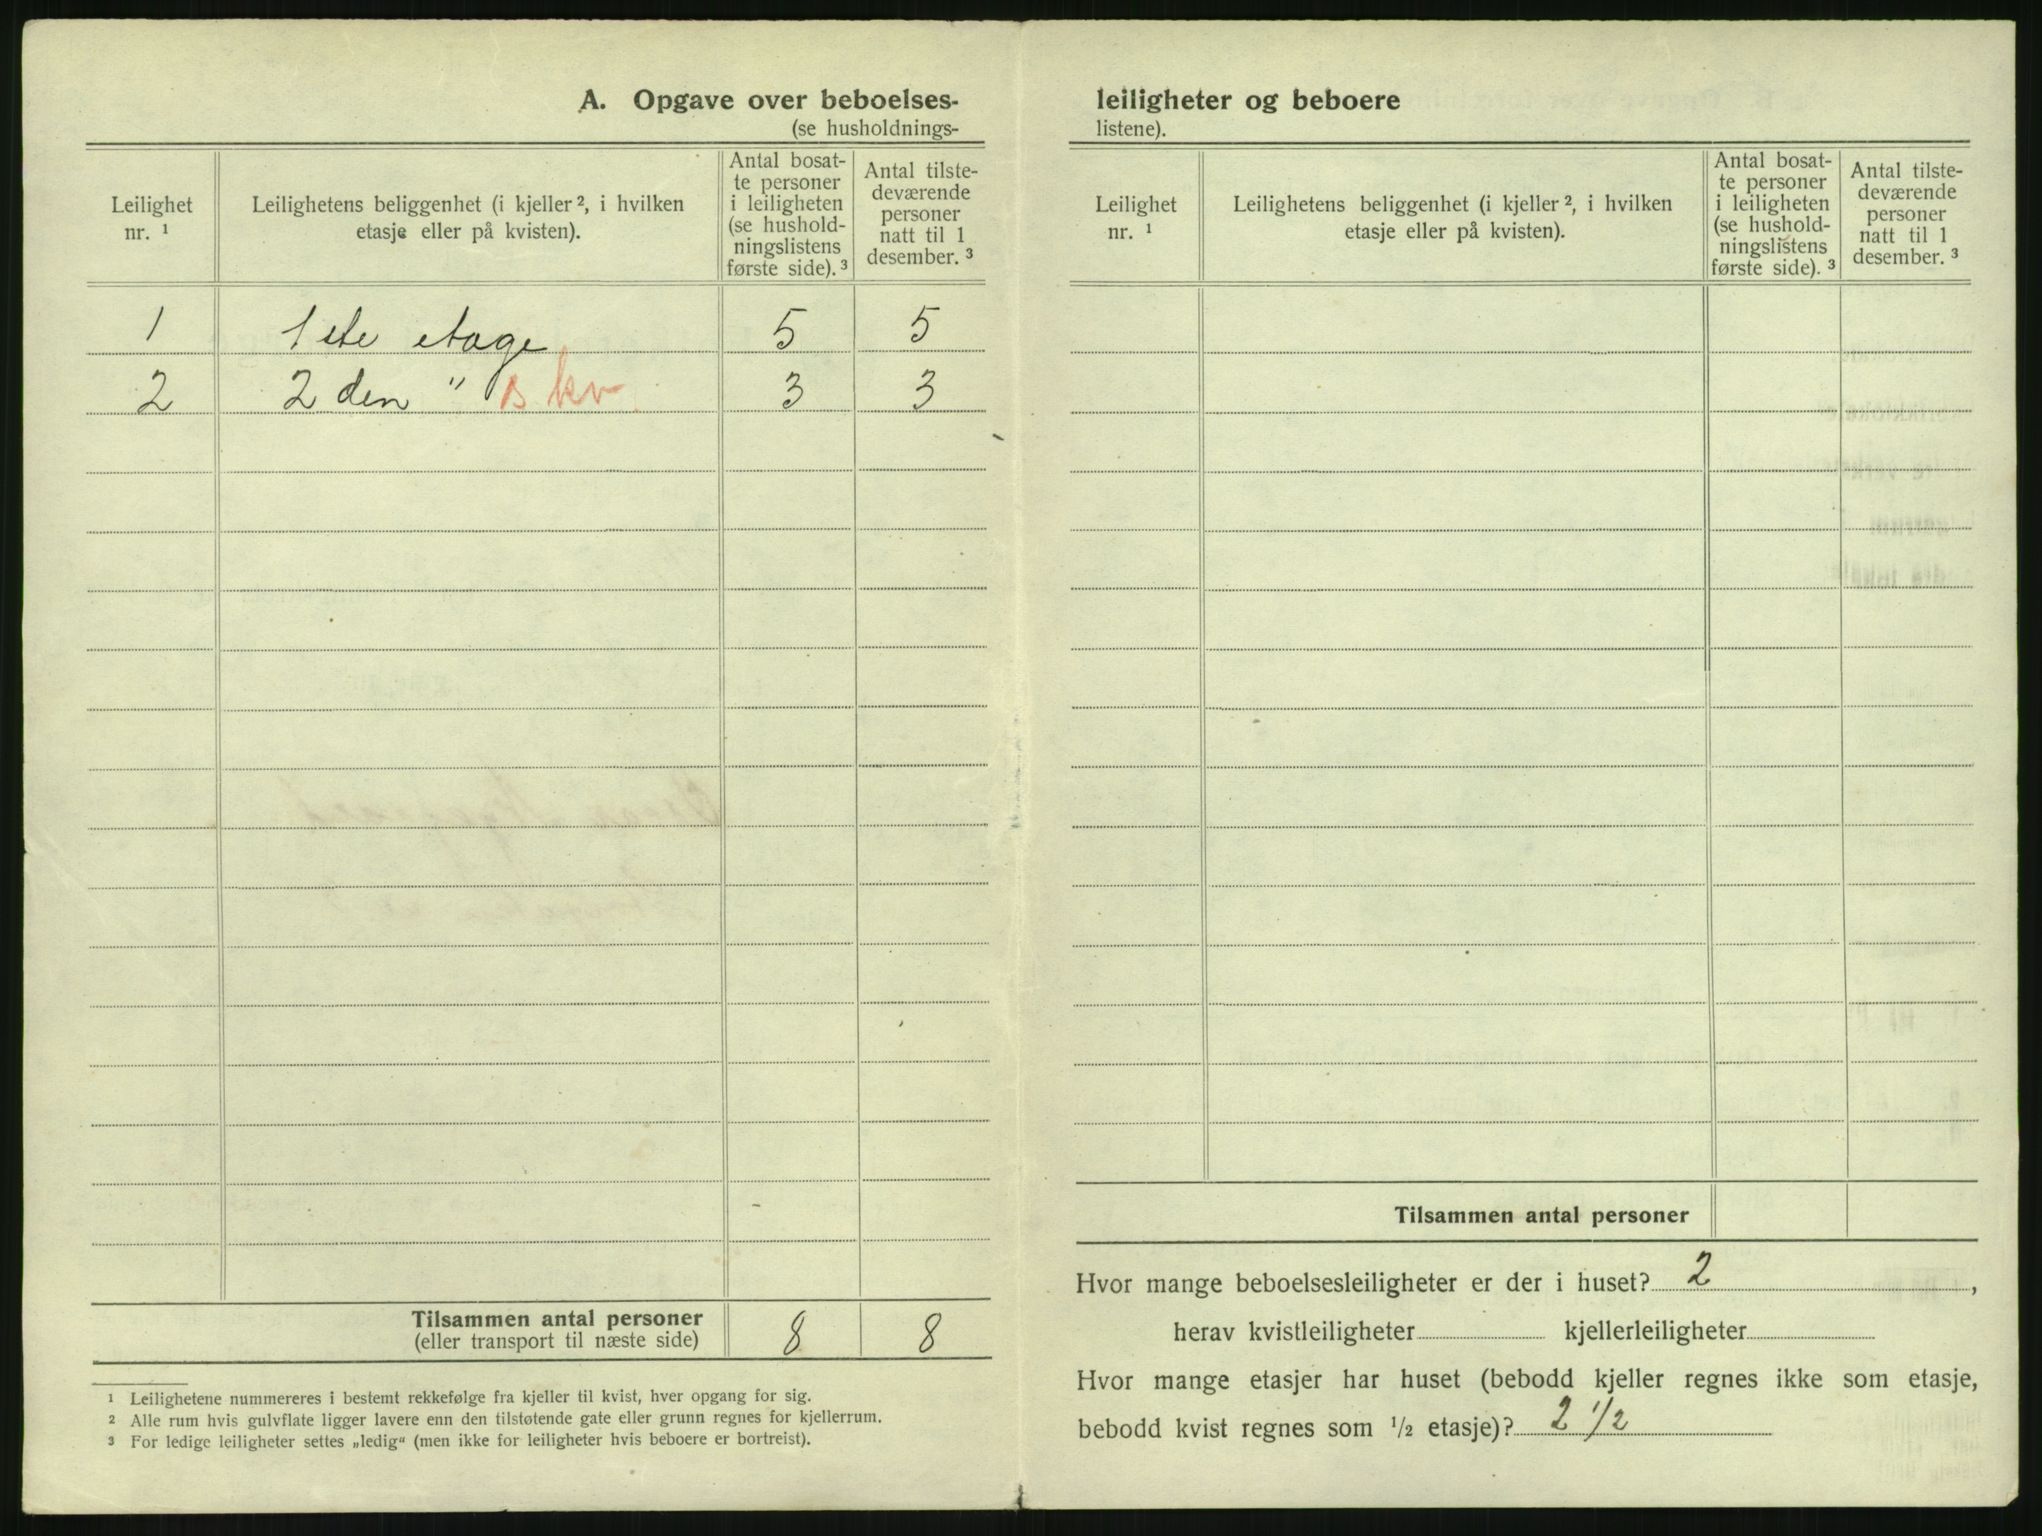 A. Opgave over beboelses-
(se husholdnings-
Leilighet
nr. 1
Leilighetens beliggenhet (i kjeller ², i hvilken
etasje eller på kvisten).
Antal bosat-
te personer
i leiligheten
(se hushold-
ningslistens
første side). ³
Antal tilste-
deværende
personer
natt til 1
desember. ³
1 1ste etage 5 5
2 2den " B kv. 3 3
Tilsammen antal personer
(eller transport til næste side) 8 8
¹ Leilighetene nummereres i bestemt rekkefølge fra kjeller til kvist, hver opgang for sig.
² Alle rum hvis gulvflate ligger lavere enn den tilstøtende gate eller grunn regnes for kjellerrum.
³ For ledige leiligheter settes „ledig" (men ikke for leiligheter hvis beboere er bortreist).
leiligheter og beboere
listene).
Leilighet
nr. 1
Leilighetens beliggenhet (i kjeller ², i hvilken
etasje eller på kvisten).
Antal bosat-
te personer
i leiligheten
(se hushold-
ningslistens
første side). ³
Antal tilste-
deværende
personer
natt til 1
desember. ³
Tilsammen antal personer
Hvor mange beboelsesleiligheter er der i huset? 2,
herav kvistleiligheter kjellerleiligheter
Hvor mange etasjer har huset (bebodd kjeller regnes ikke som etasje,
bebodd kvist regnes som ½ etasje)? 2 1/2